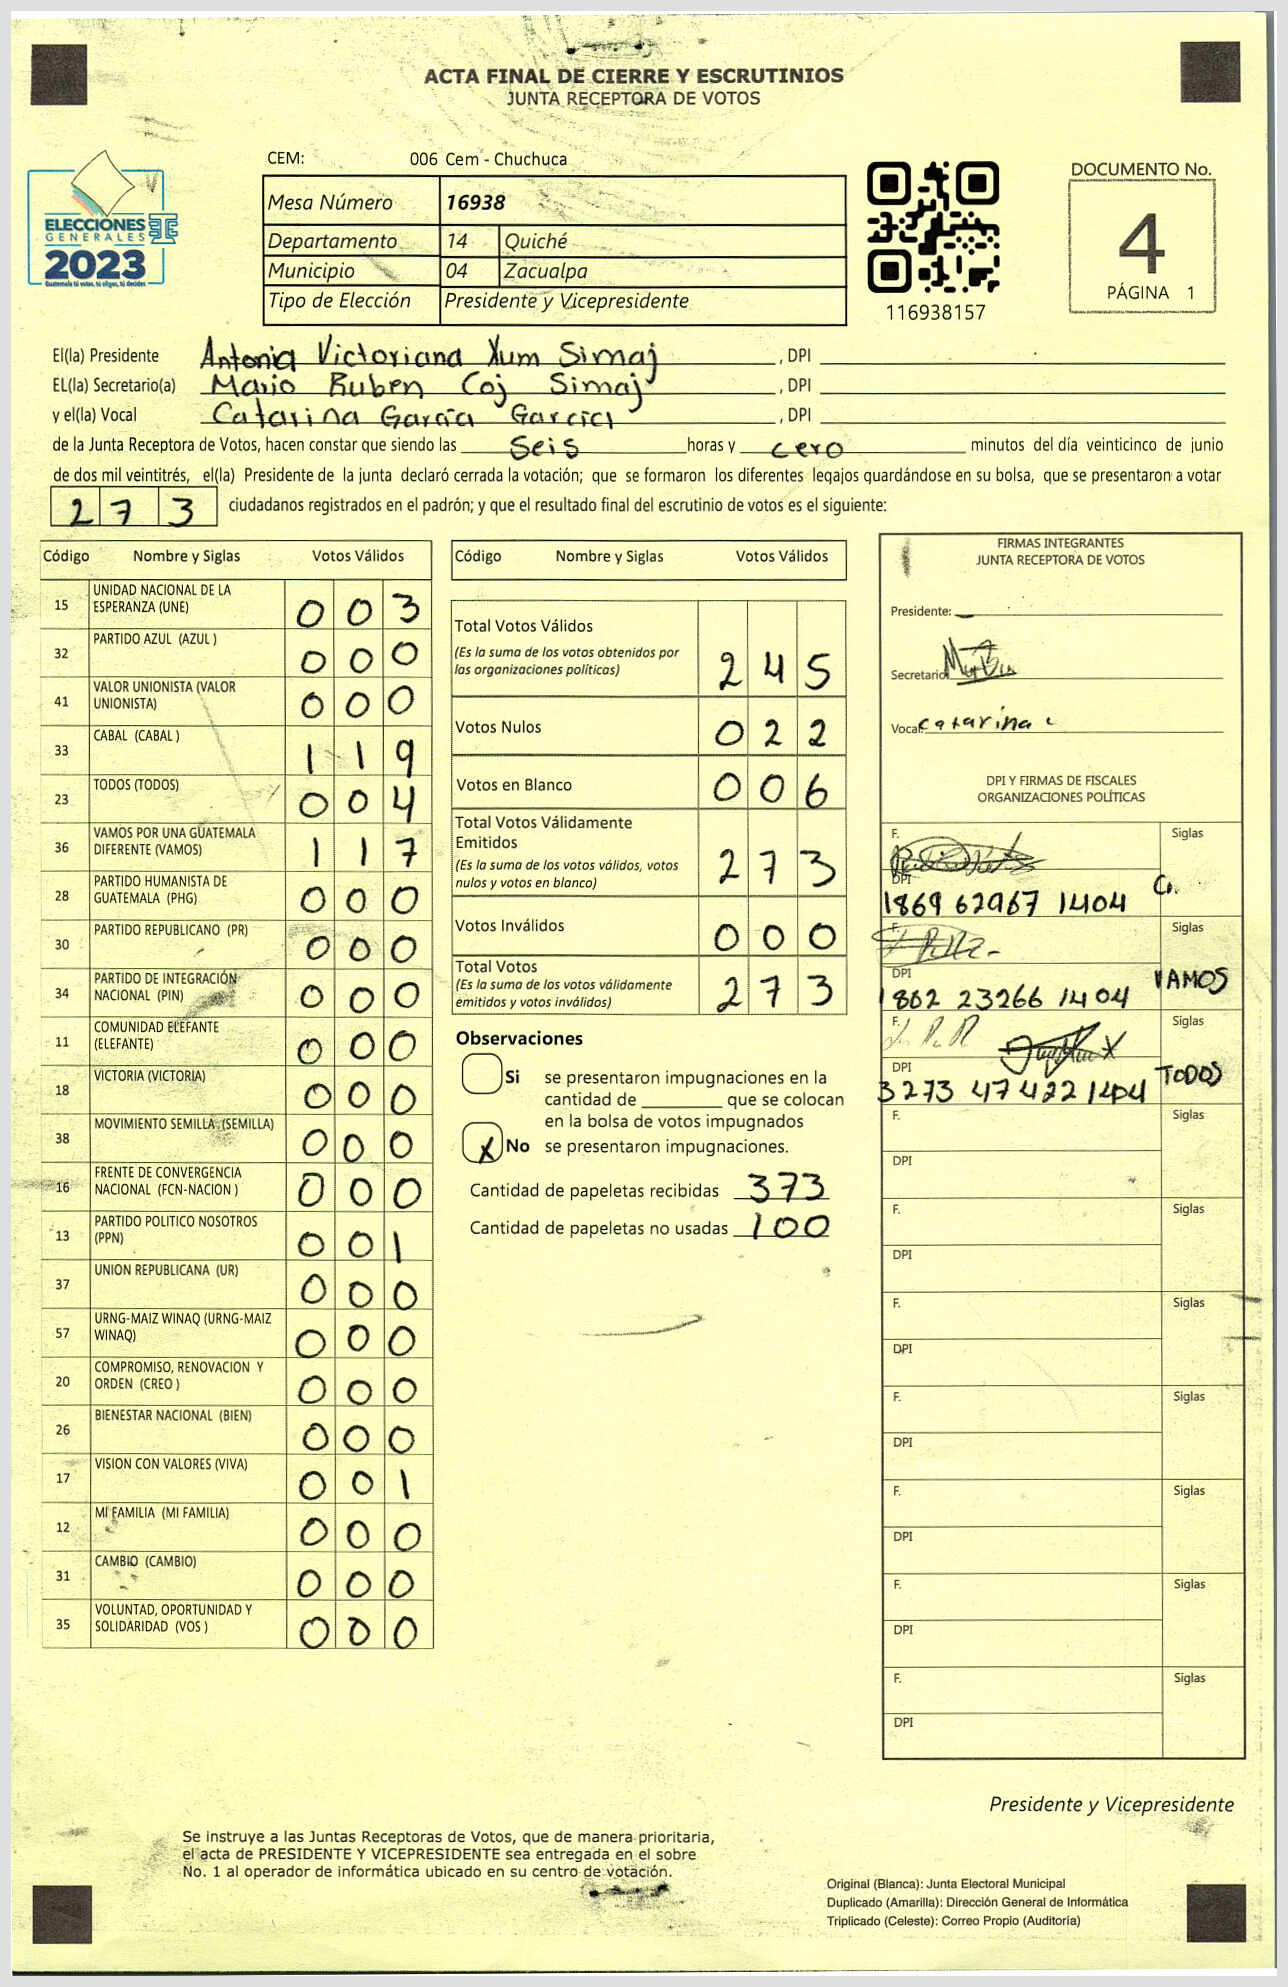 ACTA FINAL DE CIERRE Y ESCRUTINIOS
JUNTA RECEPTORA DE VOTOS
CEM: 006 Cem - Chuchuca
Mesa Número 16938
Departamento 14 Quiché
Municipio 04 Zacualpa
Tipo de Elección Presidente y Vicepresidente
ELECCIONES
GENERALES
2023
Guatemala tú votas, tú eliges, tú decides
116938157
DOCUMENTO No.
4
PÁGINA 1
El(la) Presidente Antonia Victoriana Xum Simaj , DPI
EL(la) Secretario(a) Mario Ruben Coj Simaj , DPI
y el(la) Vocal Catarina García García , DPI
de la Junta Receptora de Votos, hacen constar que siendo las Seis horas y cero minutos del día veinticinco de junio
de dos mil veintitrés, el(la) Presidente de la junta declaró cerrada la votación; que se formaron los diferentes legajos guardándose en su bolsa, que se presentaron a votar
273 ciudadanos registrados en el padrón; y que el resultado final del escrutinio de votos es el siguiente:
Código Nombre y Siglas Votos Válidos
15 UNIDAD NACIONAL DE LA ESPERANZA (UNE) 003
32 PARTIDO AZUL (AZUL ) 000
41 VALOR UNIONISTA (VALOR UNIONISTA) 000
33 CABAL (CABAL ) 119
23 TODOS (TODOS) 004
36 VAMOS POR UNA GUATEMALA DIFERENTE (VAMOS) 117
28 PARTIDO HUMANISTA DE GUATEMALA (PHG) 000
30 PARTIDO REPUBLICANO (PR) 000
34 PARTIDO DE INTEGRACIÓN NACIONAL (PIN) 000
11 COMUNIDAD ELEFANTE (ELEFANTE) 000
18 VICTORIA (VICTORIA) 000
38 MOVIMIENTO SEMILLA (SEMILLA) 000
16 FRENTE DE CONVERGENCIA NACIONAL (FCN-NACION ) 000
13 PARTIDO POLITICO NOSOTROS (PPN) 001
37 UNION REPUBLICANA (UR) 000
57 URNG-MAIZ WINAQ (URNG-MAIZ WINAQ) 000
20 COMPROMISO, RENOVACION Y ORDEN (CREO ) 000
26 BIENESTAR NACIONAL (BIEN) 000
17 VISION CON VALORES (VIVA) 001
12 MI FAMILIA (MI FAMILIA) 000
31 CAMBIO (CAMBIO) 000
35 VOLUNTAD, OPORTUNIDAD Y SOLIDARIDAD (VOS ) 000
Código Nombre y Siglas Votos Válidos
Total Votos Válidos 245
(Es la suma de los votos obtenidos por
las organizaciones políticas)
Votos Nulos 022
Votos en Blanco 006
Total Votos Válidamente
Emitidos 273
(Es la suma de los votos válidos, votos
nulos y votos en blanco)
Votos Inválidos 000
Total Votos 273
(Es la suma de los votos válidamente
emitidos y votos inválidos)
Observaciones
Si se presentaron impugnaciones en la
cantidad de ________ que se colocan
en la bolsa de votos impugnados
X No se presentaron impugnaciones.
Cantidad de papeletas recibidas 373
Cantidad de papeletas no usadas 100
FIRMAS INTEGRANTES
JUNTA RECEPTORA DE VOTOS
Presidente:
Secretario:
Vocal: catarina
DPI Y FIRMAS DE FISCALES
ORGANIZACIONES POLÍTICAS
F. Siglas
DPI
1869 62967 1404
F. Siglas
DPI VAMOS
1862 23266 1404
F. Siglas
DPI TODOS
3273 47422 1404
F. Siglas
DPI
F. Siglas
DPI
F. Siglas
DPI
F. Siglas
DPI
F. Siglas
DPI
F. Siglas
DPI
F. Siglas
DPI
Presidente y Vicepresidente
Se instruye a las Juntas Receptoras de Votos, que de manera prioritaria,
el acta de PRESIDENTE Y VICEPRESIDENTE sea entregada en el sobre
No. 1 al operador de informática ubicado en su centro de votación.
Original (Blanca): Junta Electoral Municipal
Duplicado (Amarilla): Dirección General de Informática
Triplicado (Celeste): Correo Propio (Auditoría)